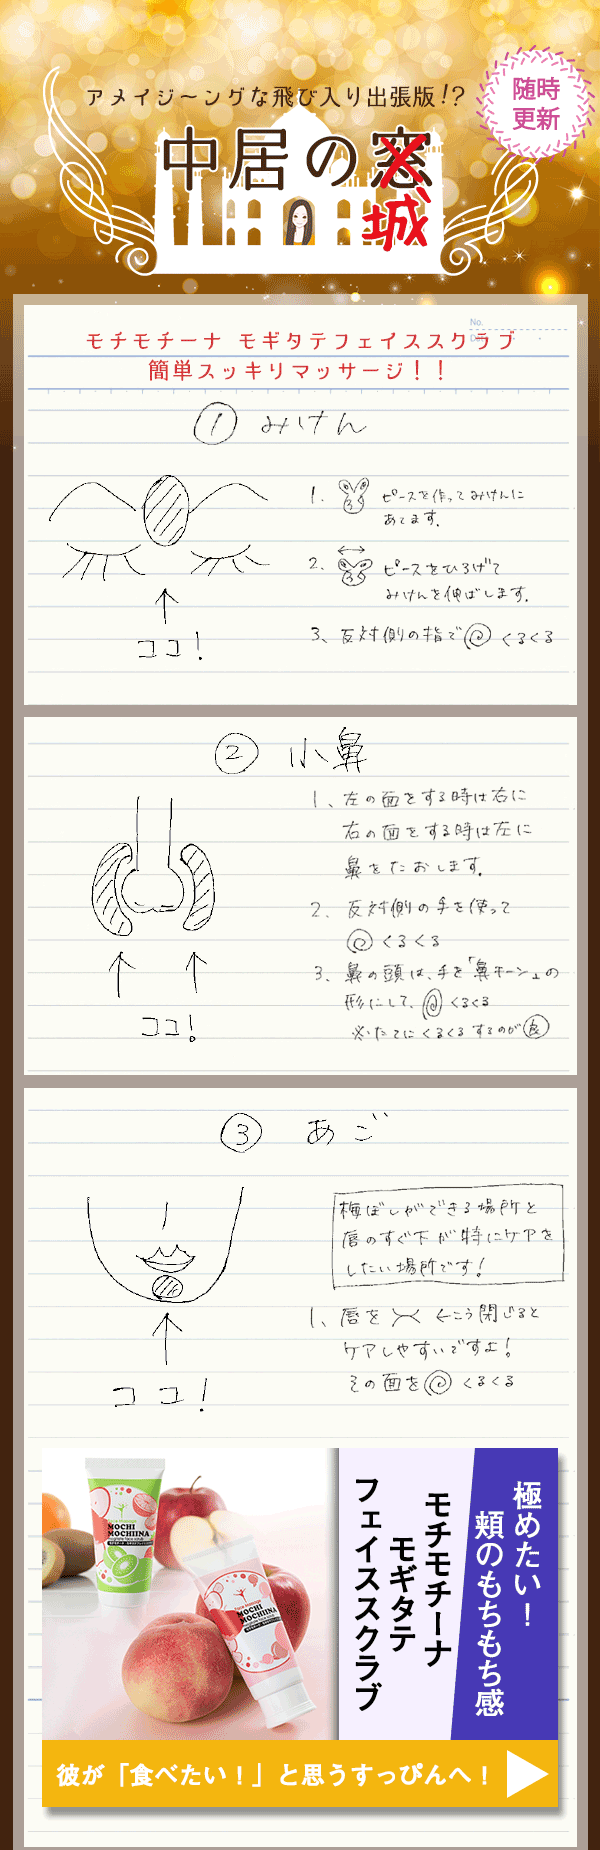 アメイジ〜ングな飛び入り出張版!?
随時
更新
中居の窓
城
No.
モチモチーナ モギタテフェイススクラブ
簡単スッキリマッサージ！！
① みけん
1. ピースを作ってみけんに
あてます.
2. ピースをひろげて
みけんを伸ばします.
3、反対側の指で くるくる
ココ！
② 小鼻
1、左の面をする時は右に
右の面をする時は左に
鼻をたおします.
2. 反対側の手を使って
くるくる
3. 鼻の頭は、手を「鼻モーン」の
形にして、 くるくる
※たてにくるくるするのが良
ココ！
③ あご
梅ぼしができる場所と
唇のすぐ下が特にケアを
したい場所です！
1、唇を ←こう閉じると
ケアしやすいですよ！
その面を くるくる
ココ！
MOCHI
MOCHIINA
MOCHI
MOCHIINA
極めたい！
頬のもちもち感
モチモチーナ
モギタテ
フェイススクラブ
彼が「食べたい！」と思うすっぴんへ！